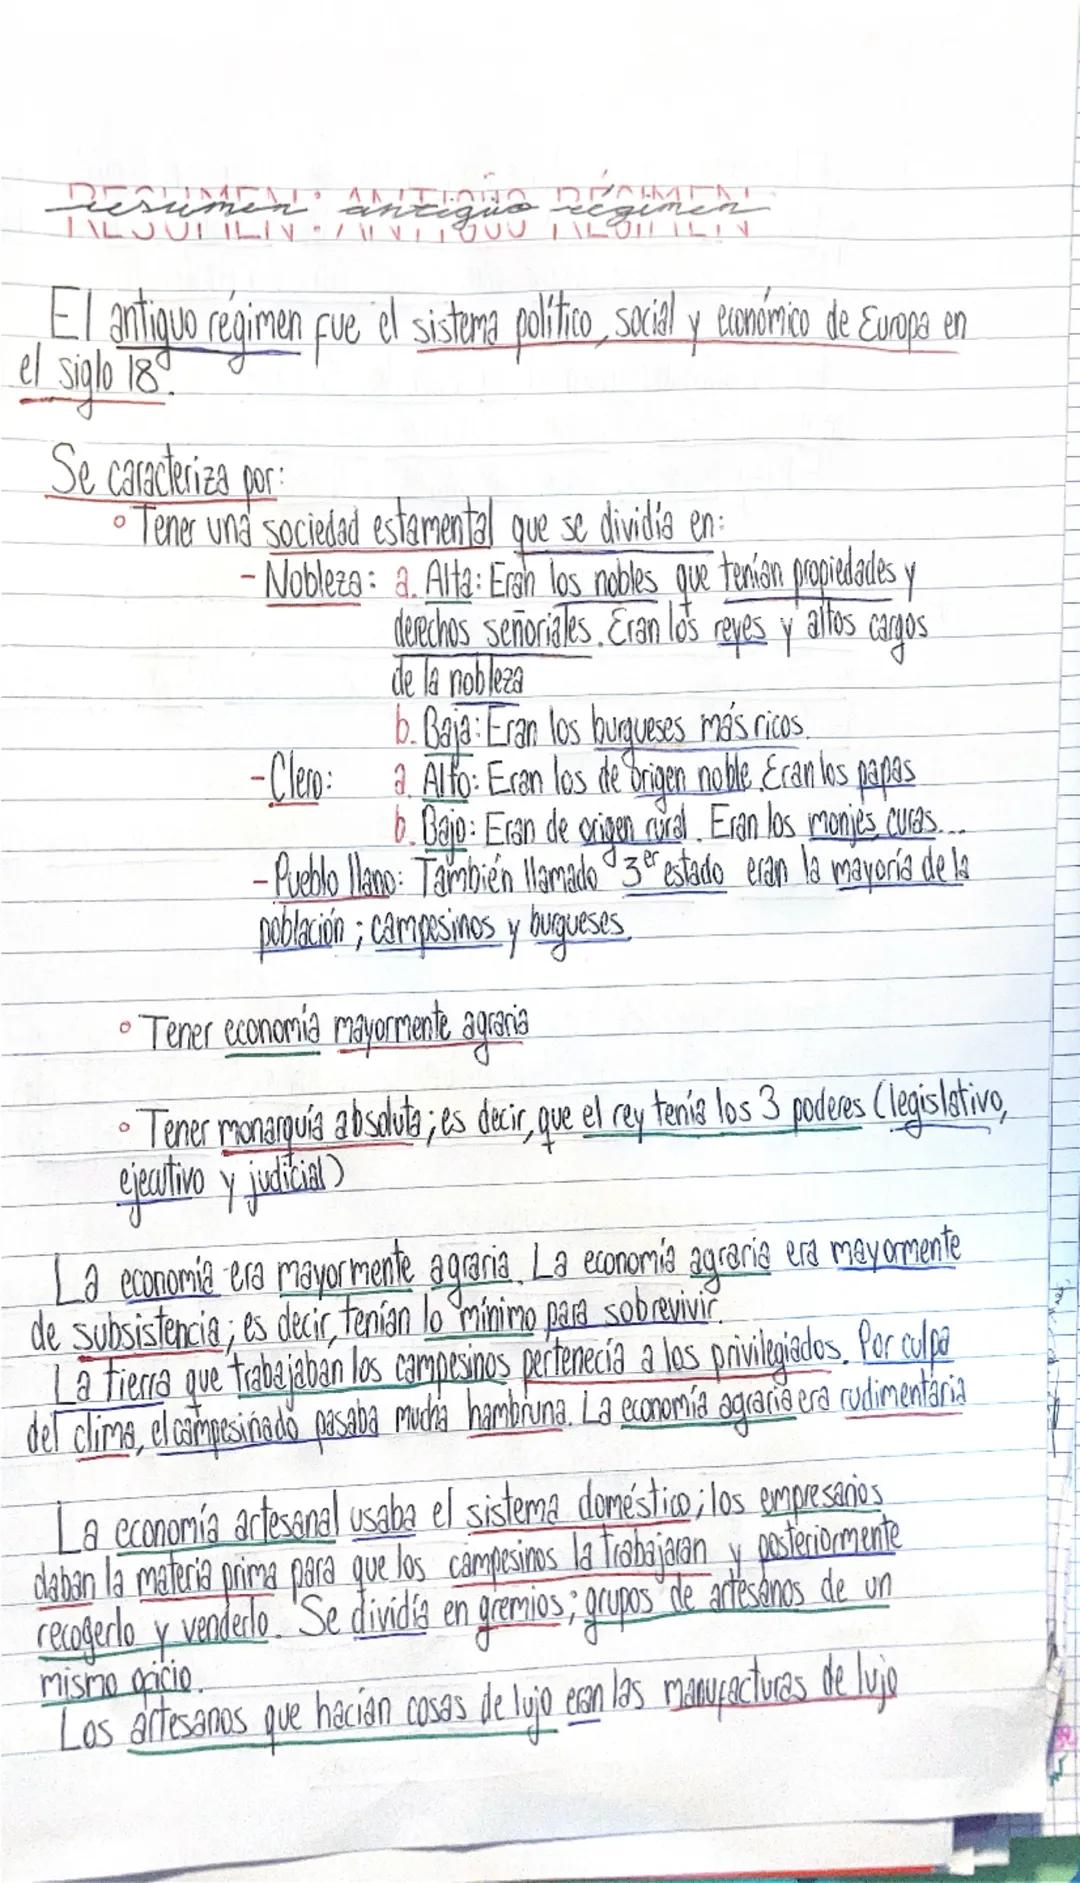 RESUMEN: ANTIGUO RÉGIMEN
resumen antiguo régimen
El antiguo régimen fue el sistema político, social y económico de Europa en
el siglo 18.
Se caracteriza por:
° Tener una sociedad estamental que se dividía en:
- Nobleza: a. Alta: Eran los nobles que tenían propiedades y
derechos señoriales. Eran los reyes y altos cargos
de la nobleza
b. Baja: Eran los burgueses más ricos.
- Clero: a. Alto: Eran los de origen noble. Eran los papas
b. Bajo: Eran de origen rural. Eran los monjes, curas...
- Pueblo llano: También llamado 3er estado eran la mayoría de la
población; campesinos y burgueses.
° Tener economía mayormente agraria
° Tener monarquía absoluta; es decir, que el rey tenía los 3 poderes (legislativo,
ejecutivo y judicial)
La economía era mayormente agraria. La economía agraria era mayormente
de subsistencia; es decir, tenían lo mínimo para sobrevivir.
La tierra que trabajaban los campesinos pertenecía a los privilegiados. Por culpa
del clima, el campesinado pasaba mucha hambruna. La economía agraria era rudimentaria
La economía artesanal usaba el sistema doméstico; los empresarios
daban la materia prima para que los campesinos la trabajaran y posteriormente
recogerlo y venderlo. Se dividía en gremios; grupos de artesanos de un
mismo oficio.
Los artesanos que hacían cosas de lujo eran las manufacturas de lujo